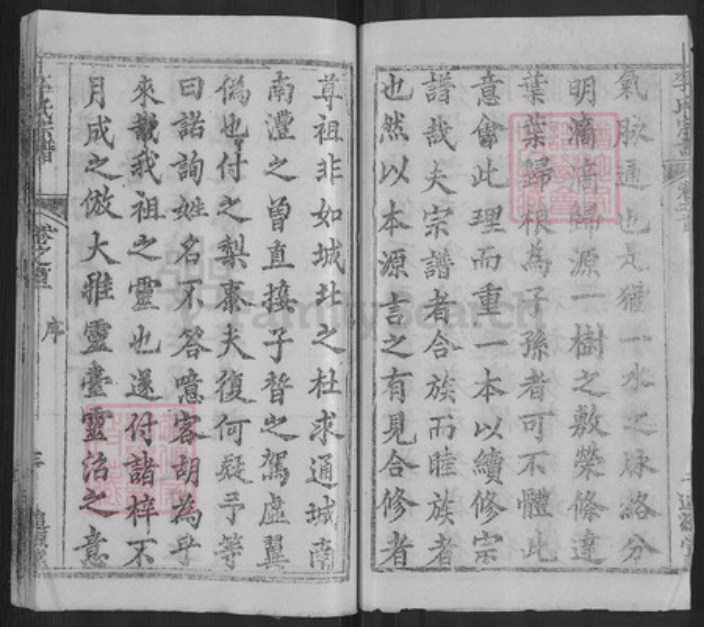 氣脉通也是猶一水之脉絡分
明滴滴歸源一樹之敷榮條達
葉葉歸根為子孫者可不體此
意會此理而重一本以續修宗
譜哉夫宗譜者合族而睦族者
也然以本源言之有見合修者
尊祖非如城北之杜求通城南
南灃之曾直接子晳之駕虛翼
偽也付之梨棗夫復何疑予等
曰諾詢姓名不答噫客胡為乎
來哉我祖之靈也遂付諸梓不
月成之倣大雅靈臺靈治之意
李氏宗譜
卷之首
序
FamilySearch